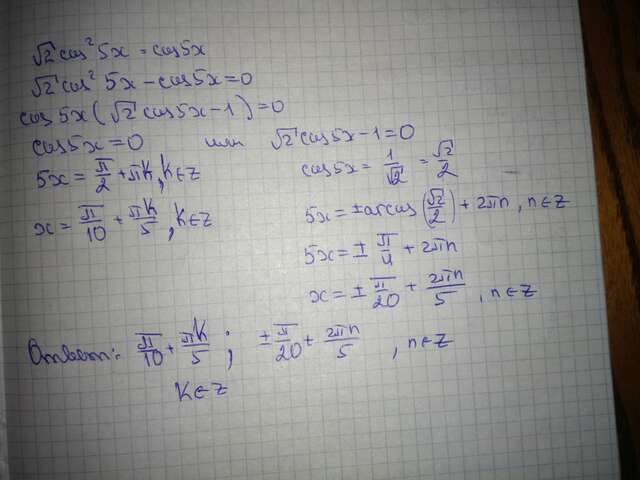 √2 cos² 5x = cos 5x
√2 cos² 5x - cos 5x = 0
cos 5x (√2 cos 5x - 1) = 0
cos 5x = 0 или √2 cos 5x - 1 = 0
5x = π/2 + πk, k∈Z
x = π/10 + πk/5, k∈Z
cos 5x = 1/√2 = √2/2
5x = ± arccos (√2/2) + 2πn, n∈Z
5x = ± π/4 + 2πn
x = ± π/20 + 2πn/5, n∈Z
Ответ: π/10 + πk/5; ± π/20 + 2πn/5, n∈Z
k∈Z